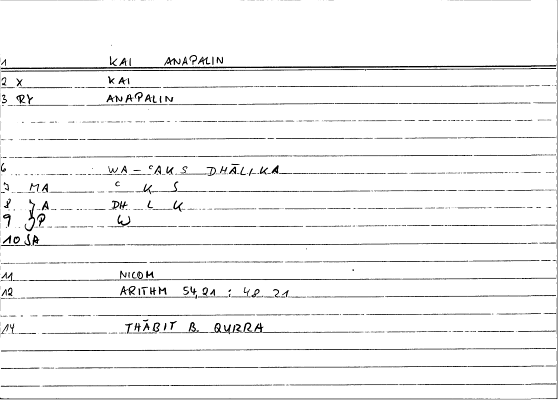 1 KAI ANAPALIN
2 X KAI
3 RY ANAPALIN
6 WA-ʿAKS DHĀLIKA
7 MA ʿ K S
8 JA DH L K
9 JP W
10 SA
11 NICOM
12 ARITHM 54,21 : 48 21
14 THĀBIT B. QURRA